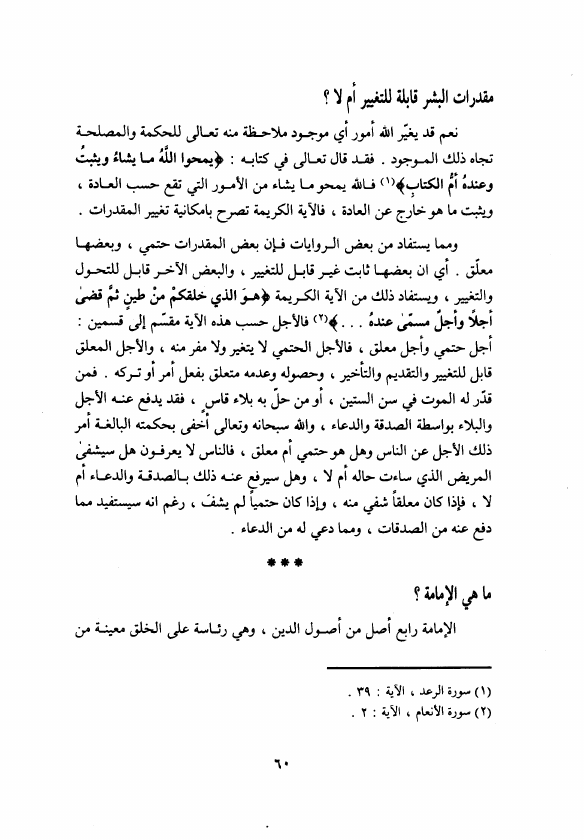 مقدرات البشر قابلة للتغيير أم لا ؟
نعم قد يغيّر الله أمور أي موجود ملاحظة منه تعالى للحكمة والمصلحة
تجاه ذلك الموجود . فقد قال تعالى في كتابه : ﴿يمحوا اللَّهُ ما يشاءُ ويثبتُ
وعندهُ أمُّ الكتاب﴾(١) فالله يمحو ما يشاء من الأمور التي تقع حسب العادة ،
ويثبت ما هو خارج عن العادة ، فالآية الكريمة تصرح بامكانية تغيير المقدرات .
ومما يستفاد من بعض الروايات فإن بعض المقدرات حتمي ، وبعضها
معلّق . أي ان بعضها ثابت غير قابل للتغيير ، والبعض الآخر قابل للتحول
والتغيير ، ويستفاد ذلك من الآية الكريمة ﴿هو الذي خلقكمْ منْ طينٍ ثمَّ قضىٰ
أجلًا وأجلٌ مسمّى عندهُ . . .﴾(٢) فالأجل حسب هذه الآية مقسّم إلى قسمين :
أجل حتمي وأجل معلق ، فالأجل الحتمي لا يتغير ولا مفر منه ، والأجل المعلق
قابل للتغيير والتقديم والتأخير ، وحصوله وعدمه متعلق بفعل أمر أو تركه . فمن
قدّر له الموت في سن الستين ، أو من حلّ به بلاء قاسٍ ، فقد يدفع عنه الأجل
والبلاء بواسطة الصدقة والدعاء ، والله سبحانه وتعالى أخفى بحكمته البالغة أمر
ذلك الأجل عن الناس وهل هو حتمي أم معلق ، فالناس لا يعرفون هل سيشفىٰ
المريض الذي ساءت حاله أم لا ، وهل سيرفع عنه ذلك بالصدقة والدعاء أم
لا ، فإذا كان معلقاً شفي منه ، وإذا كان حتمياً لم يشفَ ، رغم انه سيستفيد مما
دفع عنه من الصدقات ، ومما دعي له من الدعاء .
* * *
ما هي الإمامة ؟
الإمامة رابع أصل من أصول الدين ، وهي رئاسة على الخلق معينة من
(١) سورة الرعد ، الآية : ٣٩ .
(٢) سورة الأنعام ، الآية : ٢ .
٦٠